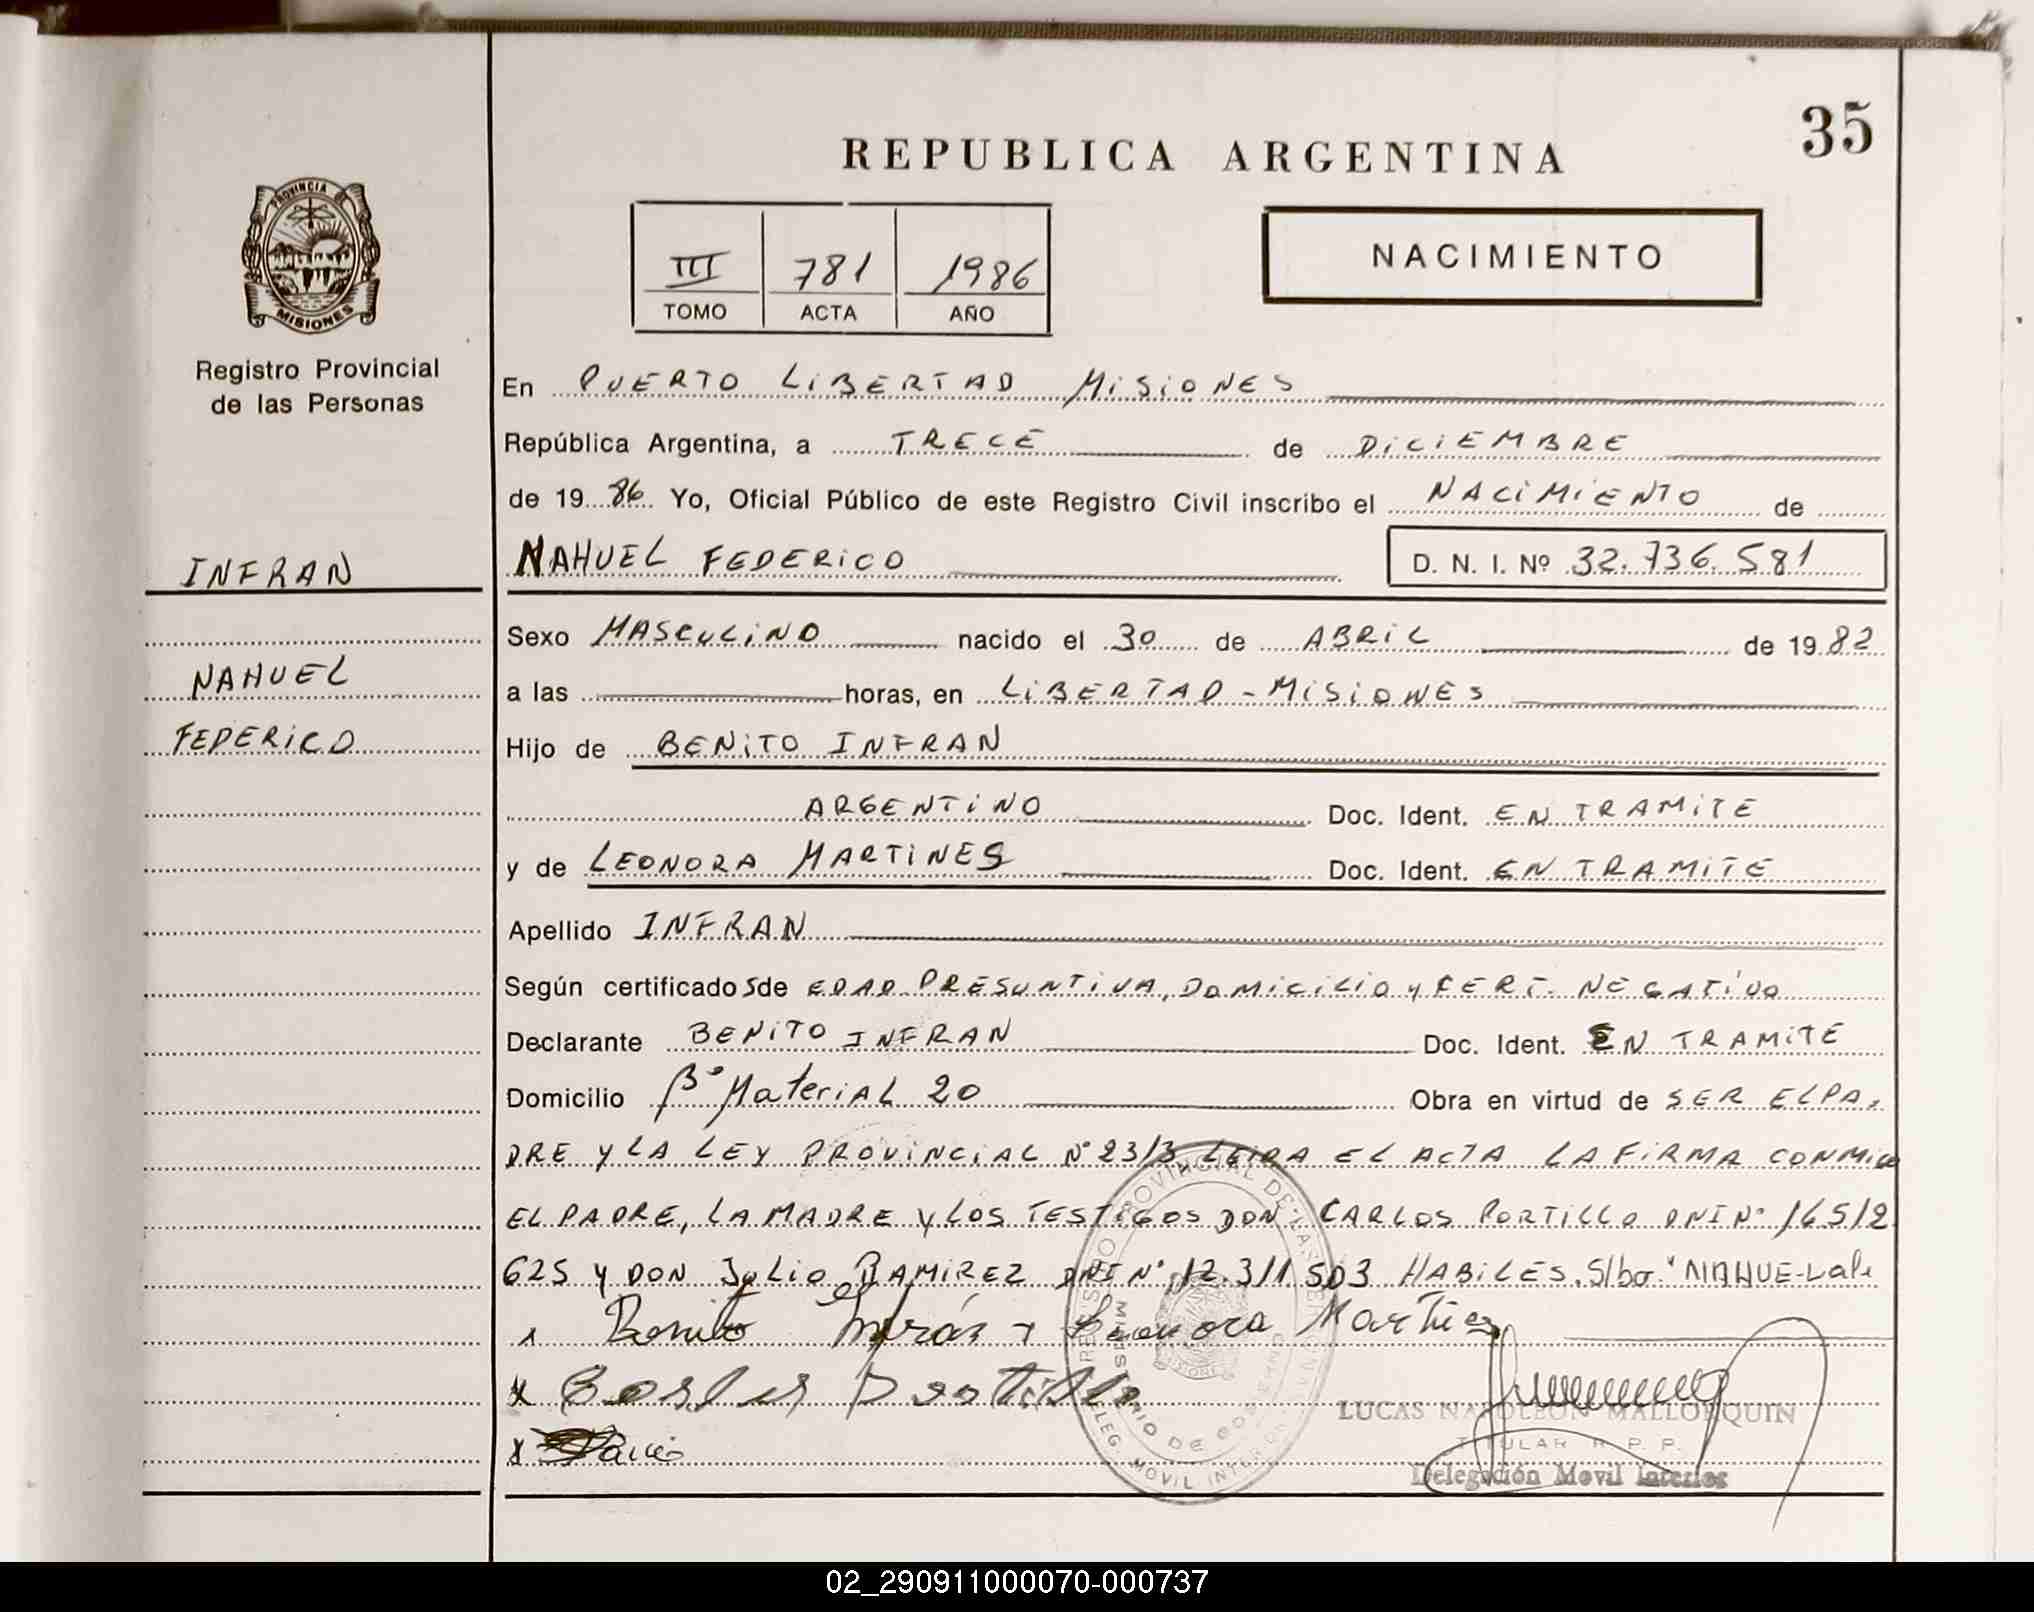 35
REPUBLICA ARGENTINA
PROVINCIA
MISIONES
Registro Provincial
de las Personas
III 781 1986
TOMO ACTA AÑO
NACIMIENTO
En PUERTO LIBERTAD MISIONES
República Argentina, a TRECE de DICIEMBRE
de 19 86 Yo, Oficial Público de este Registro Civil inscribo el NACIMIENTO de
INFRAN
NAHUEL FEDERICO D. N. I. Nº 32.736.581
Sexo MASCULINO nacido el 30 de ABRIL de 19 82
NAHUEL
a las horas, en LIBERTAD - MISIONES
FEDERICO
Hijo de BENITO INFRAN
ARGENTINO Doc. Ident. EN TRAMITE
y de LEONORA MARTINES Doc. Ident. EN TRAMITE
Apellido INFRAN
Según certificado S de EDAD PRESUNTIVA, DOMICILIO y CERT. NEGATIVO
Declarante BENITO INFRAN Doc. Ident. EN TRAMITE
Domicilio Bº Material 20 Obra en virtud de SER EL PA-
DRE Y LA LEY PROVINCIAL Nº 2313 LEIDA EL ACTA LA FIRMA CONMIGO
EL PADRE, LA MADRE Y LOS TESTIGOS DON CARLOS PORTILLO DNI Nº 16512
625 Y DON JULIO RAMIREZ DNI Nº 12.311.503 HABILES. S/bo "NAHUE-Vale
x Benito Infrán x Leonora Martines
x Carlos Portillo
x
LUCAS NAPOLEON MALLORQUIN
TITULAR R. P. P.
Delegación Movil Interior
02_290911000070-000737